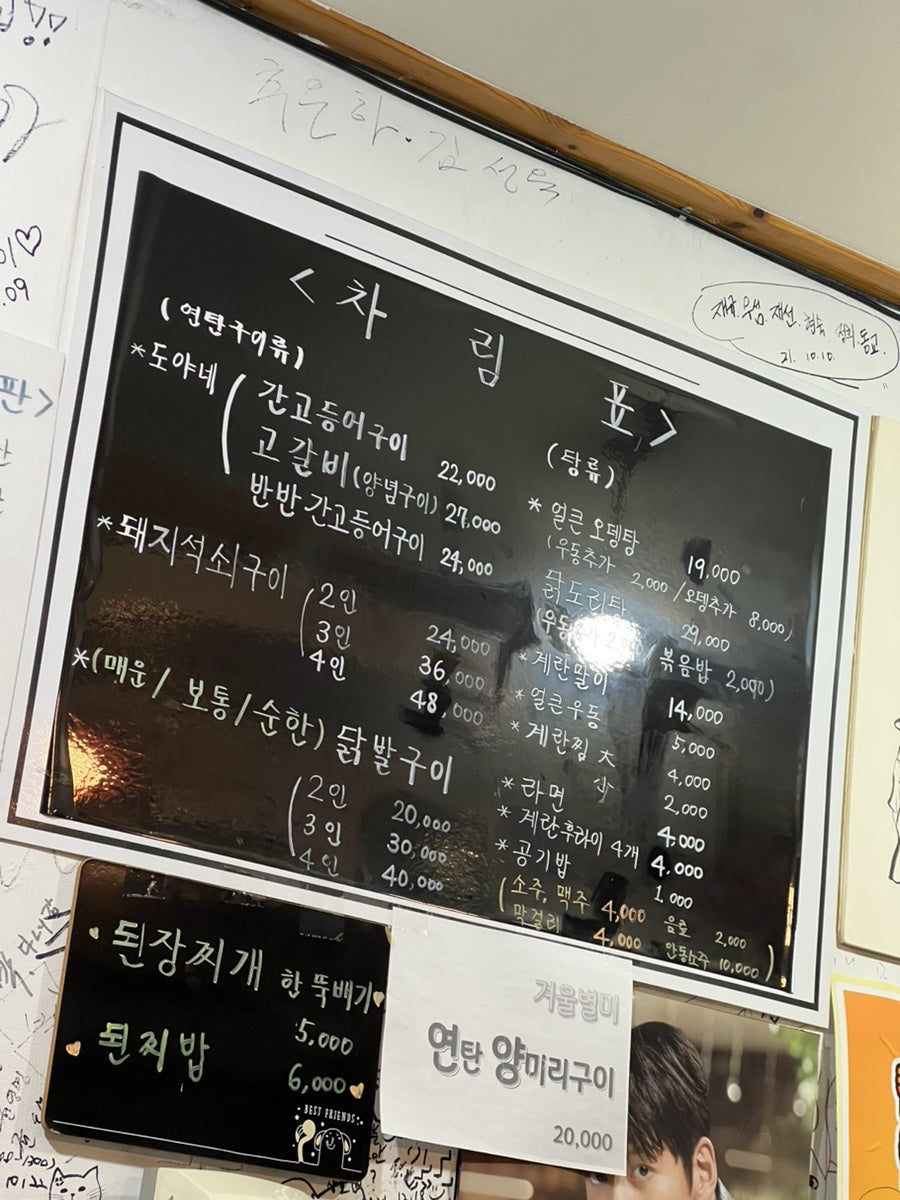 <차림표>
(연탄구이류)
*도야네
간고등어구이 22,000
고갈비(양념구이) 27,000
반반간고등어구이 24,000
*돼지석쇠구이
2인 24,000
3인 36,000
4인 48,000
*(매운/보통/순한) 닭발구이
2인 20,000
3인 30,000
4인 40,000
(탕류)
* 얼큰오뎅탕 19,000
(우동추가 2,000 /오뎅추가 8,000)
닭도리탕 29,000
(우동추가 2,000 볶음밥 2,000)
*계란말이 14,000
*얼큰우동 5,000
*계란찜 大 4,000
小 2,000
*라면 4,000
*계란후라이 4개 4,000
*공기밥 1,000
(소주, 맥주 4,000 음료 2,000
막걸리 4,000 안동소주 10,000)
된장찌개 한뚝배기
5.000
된찌밥 6,000
BEST FRIENDS
겨울별미
연탄 양미리구이
20,000
21. 10.10.
판>
.09